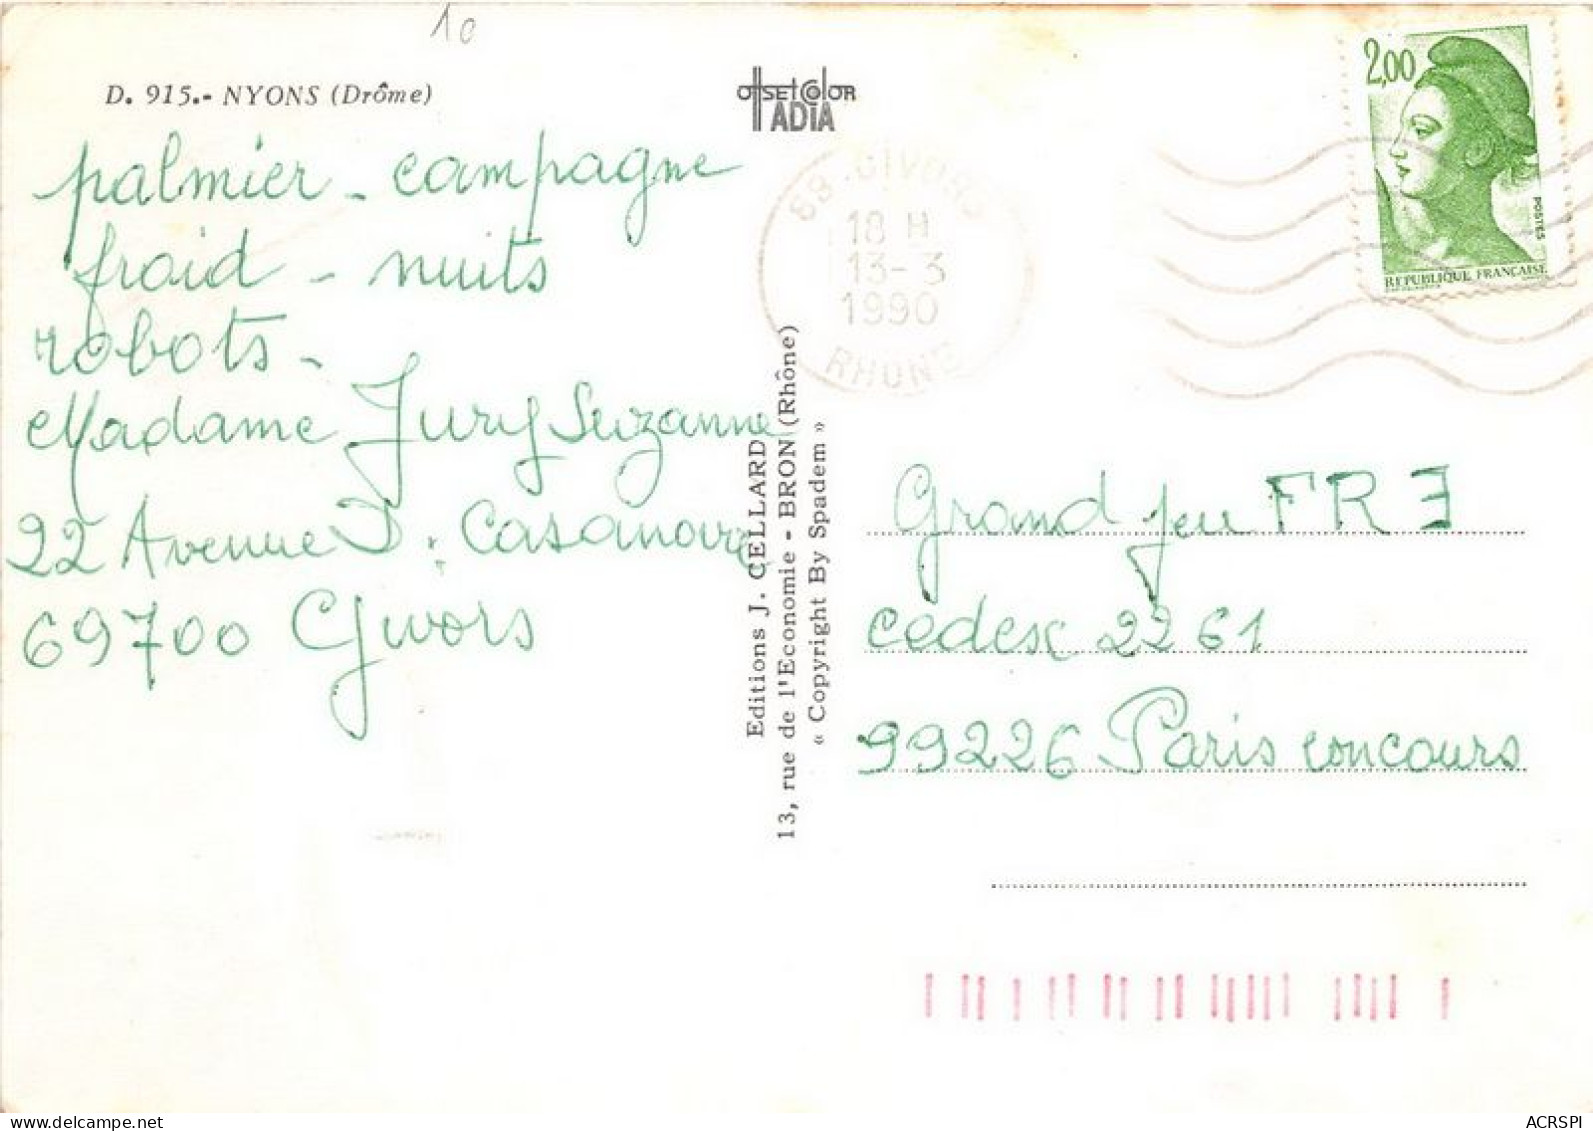 10
D. 915.- NYONS (Drôme)
OffsetColor
ADIA
palmier - campagne
froid - nuits
robots -
Madame Jury Suzanne
22 Avenue D. Casanova
69700 Givors
Editions J. CELLARD
13, rue de l'Economie - BRON (Rhône)
« Copyright By Spadem »
69 GIVORS
18 H
13-3
1990
RHONE
2,00
POSTES
REPUBLIQUE FRANÇAISE
Grand jeu FR 3
cedex 2261
99226 Paris concours
ACRSPI